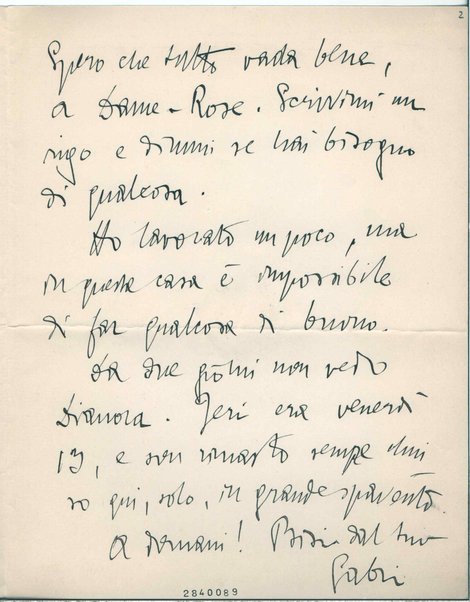 2
Spero che tutto vada bene,
a Dame-Rose. Scrivimi un
rigo e dimmi se hai bisogno
di qualcosa.
Ho lavorato un poco, ma
in questa casa è impossibile
di far qualcosa di buono.
Da due giorni non vedo
Dianora. Ieri era venerdì
13, e son rimasto sempre chiu
so qui, solo, in grande spavento.
A domani! Bisi dal tuo
Gabri
2840089